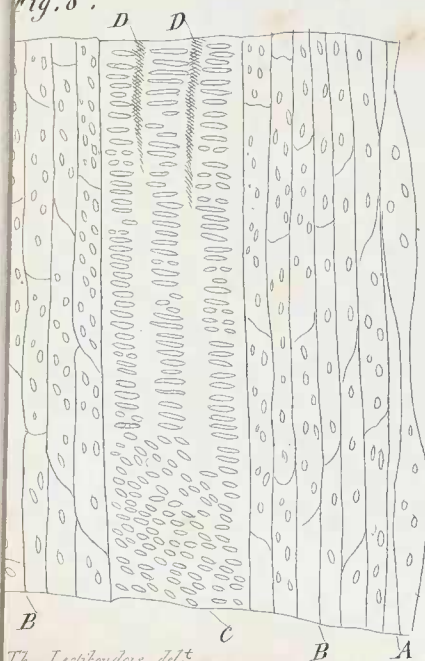 Fig. 8.
D D
B C B A
Th. Lestiboudois delt